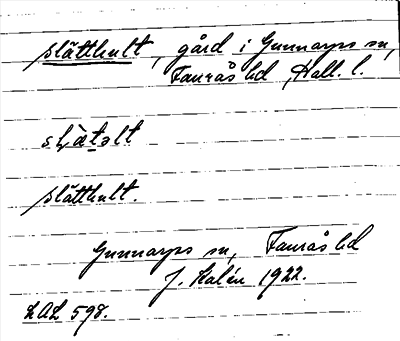 slätthult, gård i Gunnarps sn,
Faurås hd, Hall. l.
slätthult.
Gunnarps sn, Faurås hd
J. Kalén 1922.
LAL 598.